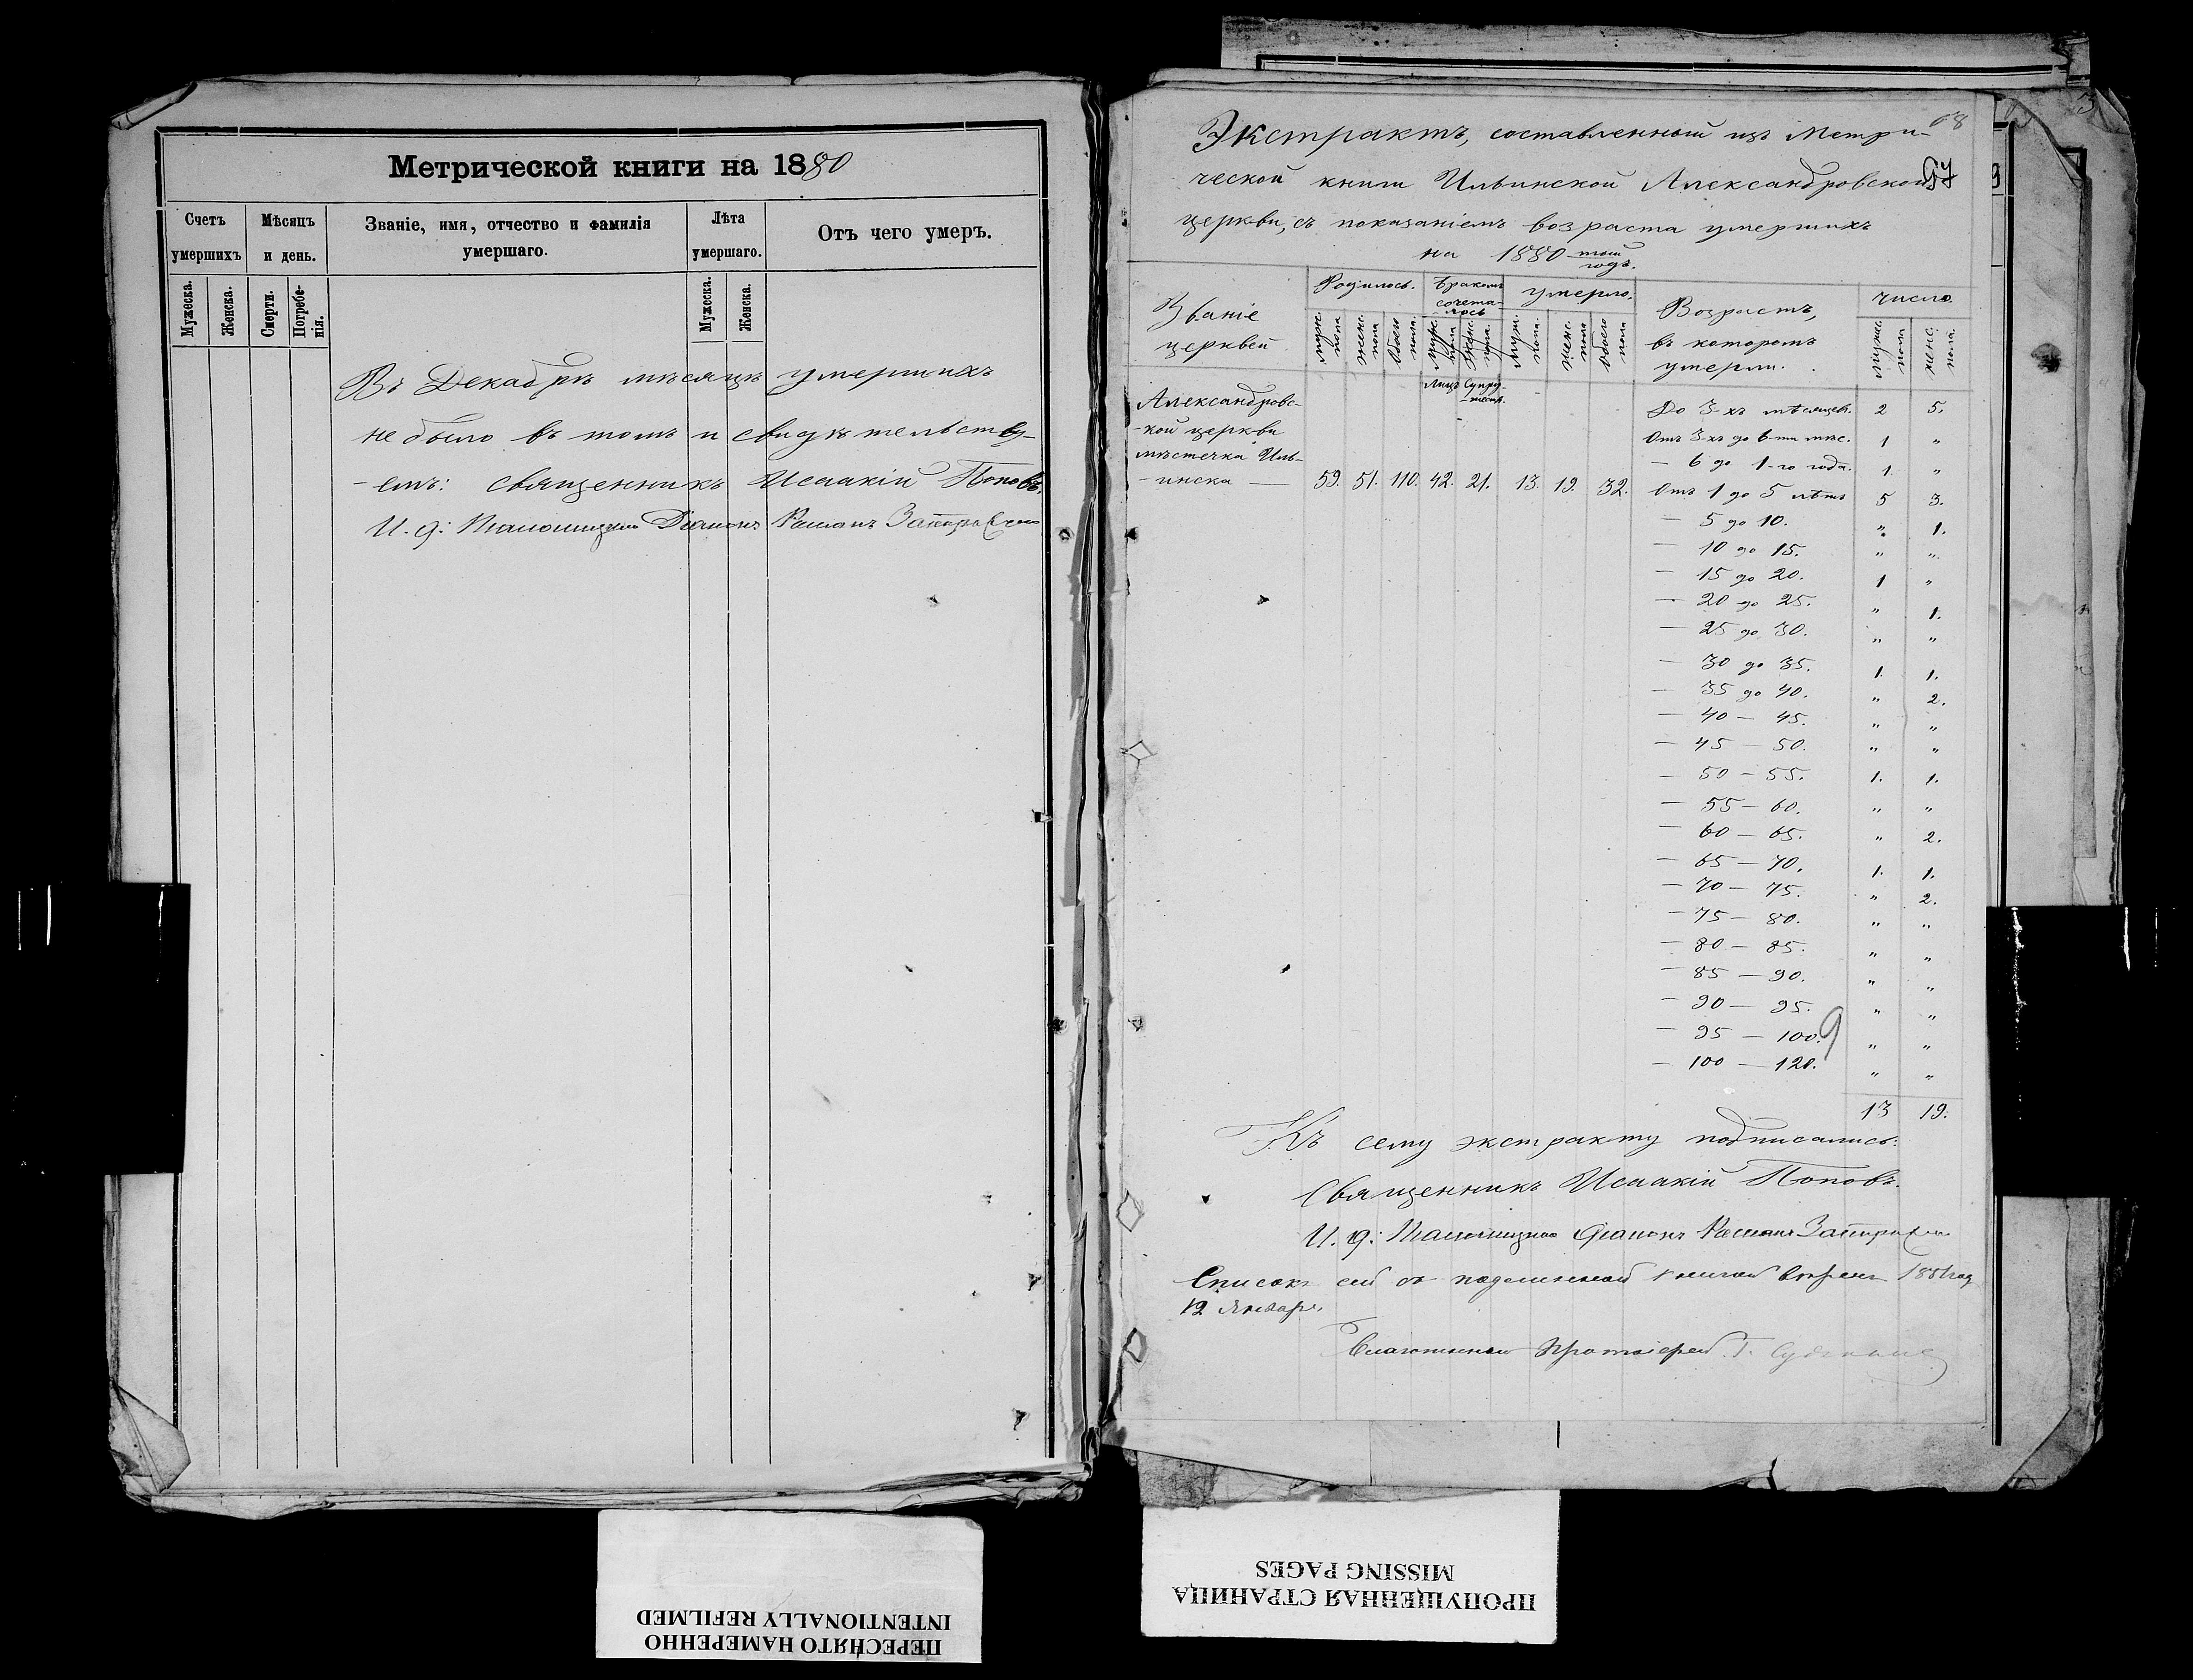 Метрической книги на 1880
Счетъ умершихъ
Мѣсяцъ и день.
Званіе, имя, отчество и фамилія умершаго.
Лѣта умершаго.
Отъ чего умеръ.
Мужеска.
Женска.
Смерти.
Погребенія.
Мужеска.
Женска.
Въ Декабрѣ мѣсяцѣ умершихъ
не было въ томъ и свидѣтельству-
-емъ: Священникъ Исаакій Поповъ.
И. д: Псаломщика Діаконъ Романъ
68
97
Экстрактъ, составленный изъ Метри-
ческой книги Ильинской Александровской
церкви, съ показаніемъ возраста умершихъ
на 1880 -тый годъ.
Званіе церквей
Родилось.
Бракомъ сочета-лось
умерло.
Возрастъ, въ которомъ умерли.
число.
муж. пола
женс. пола
Обоего пола.
муж. пола
женс. пола.
муж. пола.
женс. пола
Обоего пола
мужс. пола
женс. пола.
Лицъ Супру-
Александровс-
-кой церкви
мѣстечка Иль-
-инска — 59. 51. 110. 42. 21. 13. 19. 32.
До 3-хъ мѣсяцев. 2 5.
Отъ 3-хъ до 6-ти мѣс. 1 "
— 6 до 1-го года. 1. "
Отъ 1 до 5 лѣтъ 5 3.
— 5 до 10. " 1.
— 10 до 15. " "
— 15 до 20. 1 "
— 20 до 25. " 1.
— 25 до 30. " "
— 30 до 35. 1. 1.
— 35 до 40. " 2.
— 40 — 45. " "
— 45 — 50. " "
— 50 — 55. 1. 1.
— 55 — 60. " "
— 60 — 65. " 2.
— 65 — 70. 1. 1.
— 70 — 75. " 2.
— 75 — 80. " "
— 80 — 85. " "
— 85 — 90. " "
— 90 — 95. " "
— 95 — 100. " "
— 100 — 120. " "
13 19.
Къ сему экстракту подписались:
Священникъ Исаакій Поповъ.
И. д: Псаломщика Діаконъ Романъ
Списокъ сей съ подлинной книгой вѣренъ 1881 год
12 Января
Благочинный Протоіерей
ПЕРЕСНЯТО НАМЕРЕННО
INTENTIONALLY REFILMED
ПРОПУЩЕННАЯ СТРАНИЦА
MISSING PAGES